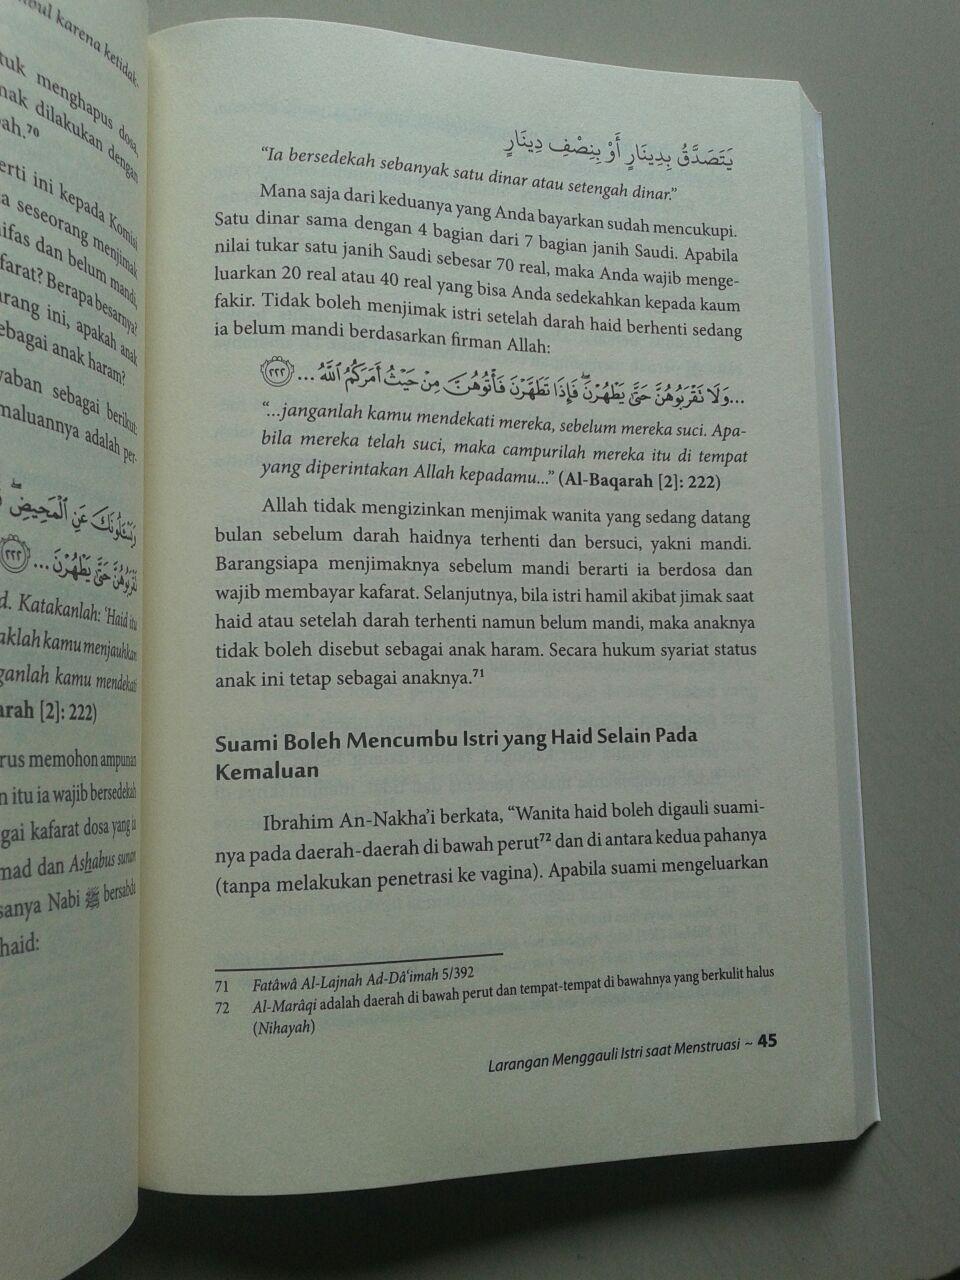 bul karena ketidak-
tuk menghapus dosa,
nak dilakukan dengan
ah.⁷⁰
erti ini kepada Komisi
a seseorang menjimak
ifas dan belum mandi,
afarat? Berapa besarnya?
arang ini, apakah anak
sebagai anak haram?
vaban sebagai berikut:
maluannya adalah per-
d. Katakanlah: 'Haid itu
aklah kamu menjauhkan
ganlah kamu mendekati
arah [2]: 222)
rus memohon ampunan
n itu ia wajib bersedekah
gai kafarat dosa yang ia
mad dan Ashabus sunan
sanya Nabi ﷺ bersabda
haid:
يَتَصَدَّقُ بِدِينَارٍ أَوْ بِنِصْفِ دِينَارٍ
“Ia bersedekah sebanyak satu dinar atau setengah dinar.”
Mana saja dari keduanya yang Anda bayarkan sudah mencukupi.
Satu dinar sama dengan 4 bagian dari 7 bagian janih Saudi. Apabila
nilai tukar satu janih Saudi sebesar 70 real, maka Anda wajib menge-
luarkan 20 real atau 40 real yang bisa Anda sedekahkan kepada kaum
fakir. Tidak boleh menjimak istri setelah darah haid berhenti sedang
ia belum mandi berdasarkan firman Allah:
...وَلَا تَقْرَبُوهُنَّ حَتَّىٰ يَطْهُرْنَ ۖ فَإِذَا تَطَهَّرْنَ فَأْتُوهُنَّ مِنْ حَيْثُ أَمَرَكُمُ ٱللَّهُ ... ٢٢٢
“...janganlah kamu mendekati mereka, sebelum mereka suci. Apa-
bila mereka telah suci, maka campurilah mereka itu di tempat
yang diperintakan Allah kepadamu...” (Al-Baqarah [2]: 222)
Allah tidak mengizinkan menjimak wanita yang sedang datang
bulan sebelum darah haidnya terhenti dan bersuci, yakni mandi.
Barangsiapa menjimaknya sebelum mandi berarti ia berdosa dan
wajib membayar kafarat. Selanjutnya, bila istri hamil akibat jimak saat
haid atau setelah darah terhenti namun belum mandi, maka anaknya
tidak boleh disebut sebagai anak haram. Secara hukum syariat status
anak ini tetap sebagai anaknya.⁷¹
Suami Boleh Mencumbu Istri yang Haid Selain Pada
Kemaluan
Ibrahim An-Nakha'i berkata, “Wanita haid boleh digauli suami-
nya pada daerah-daerah di bawah perut⁷² dan di antara kedua pahanya
(tanpa melakukan penetrasi ke vagina). Apabila suami mengeluarkan
71 Fatâwâ Al-Lajnah Ad-Dâ'imah 5/392
72 Al-Marâqi adalah daerah di bawah perut dan tempat-tempat di bawahnya yang berkulit halus
(Nihayah)
Larangan Menggauli Istri saat Menstruasi ~ 45